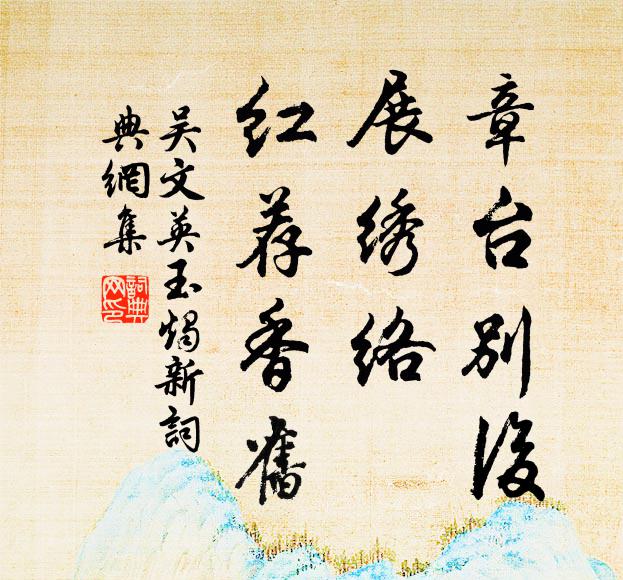 章台别後
展绣络
红荐香舊
吴文英玉燭新詞
典網集
詞典
网印